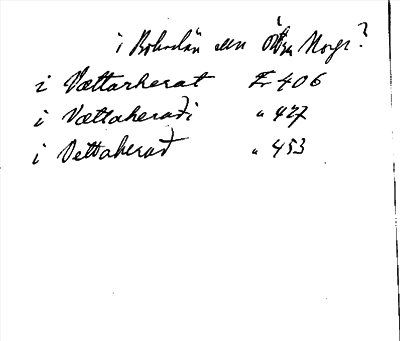 i Bohuslän eller östra Norge?
i Vættarherat E 406
i Vættaheraði " 427
i Vettaherað " 453